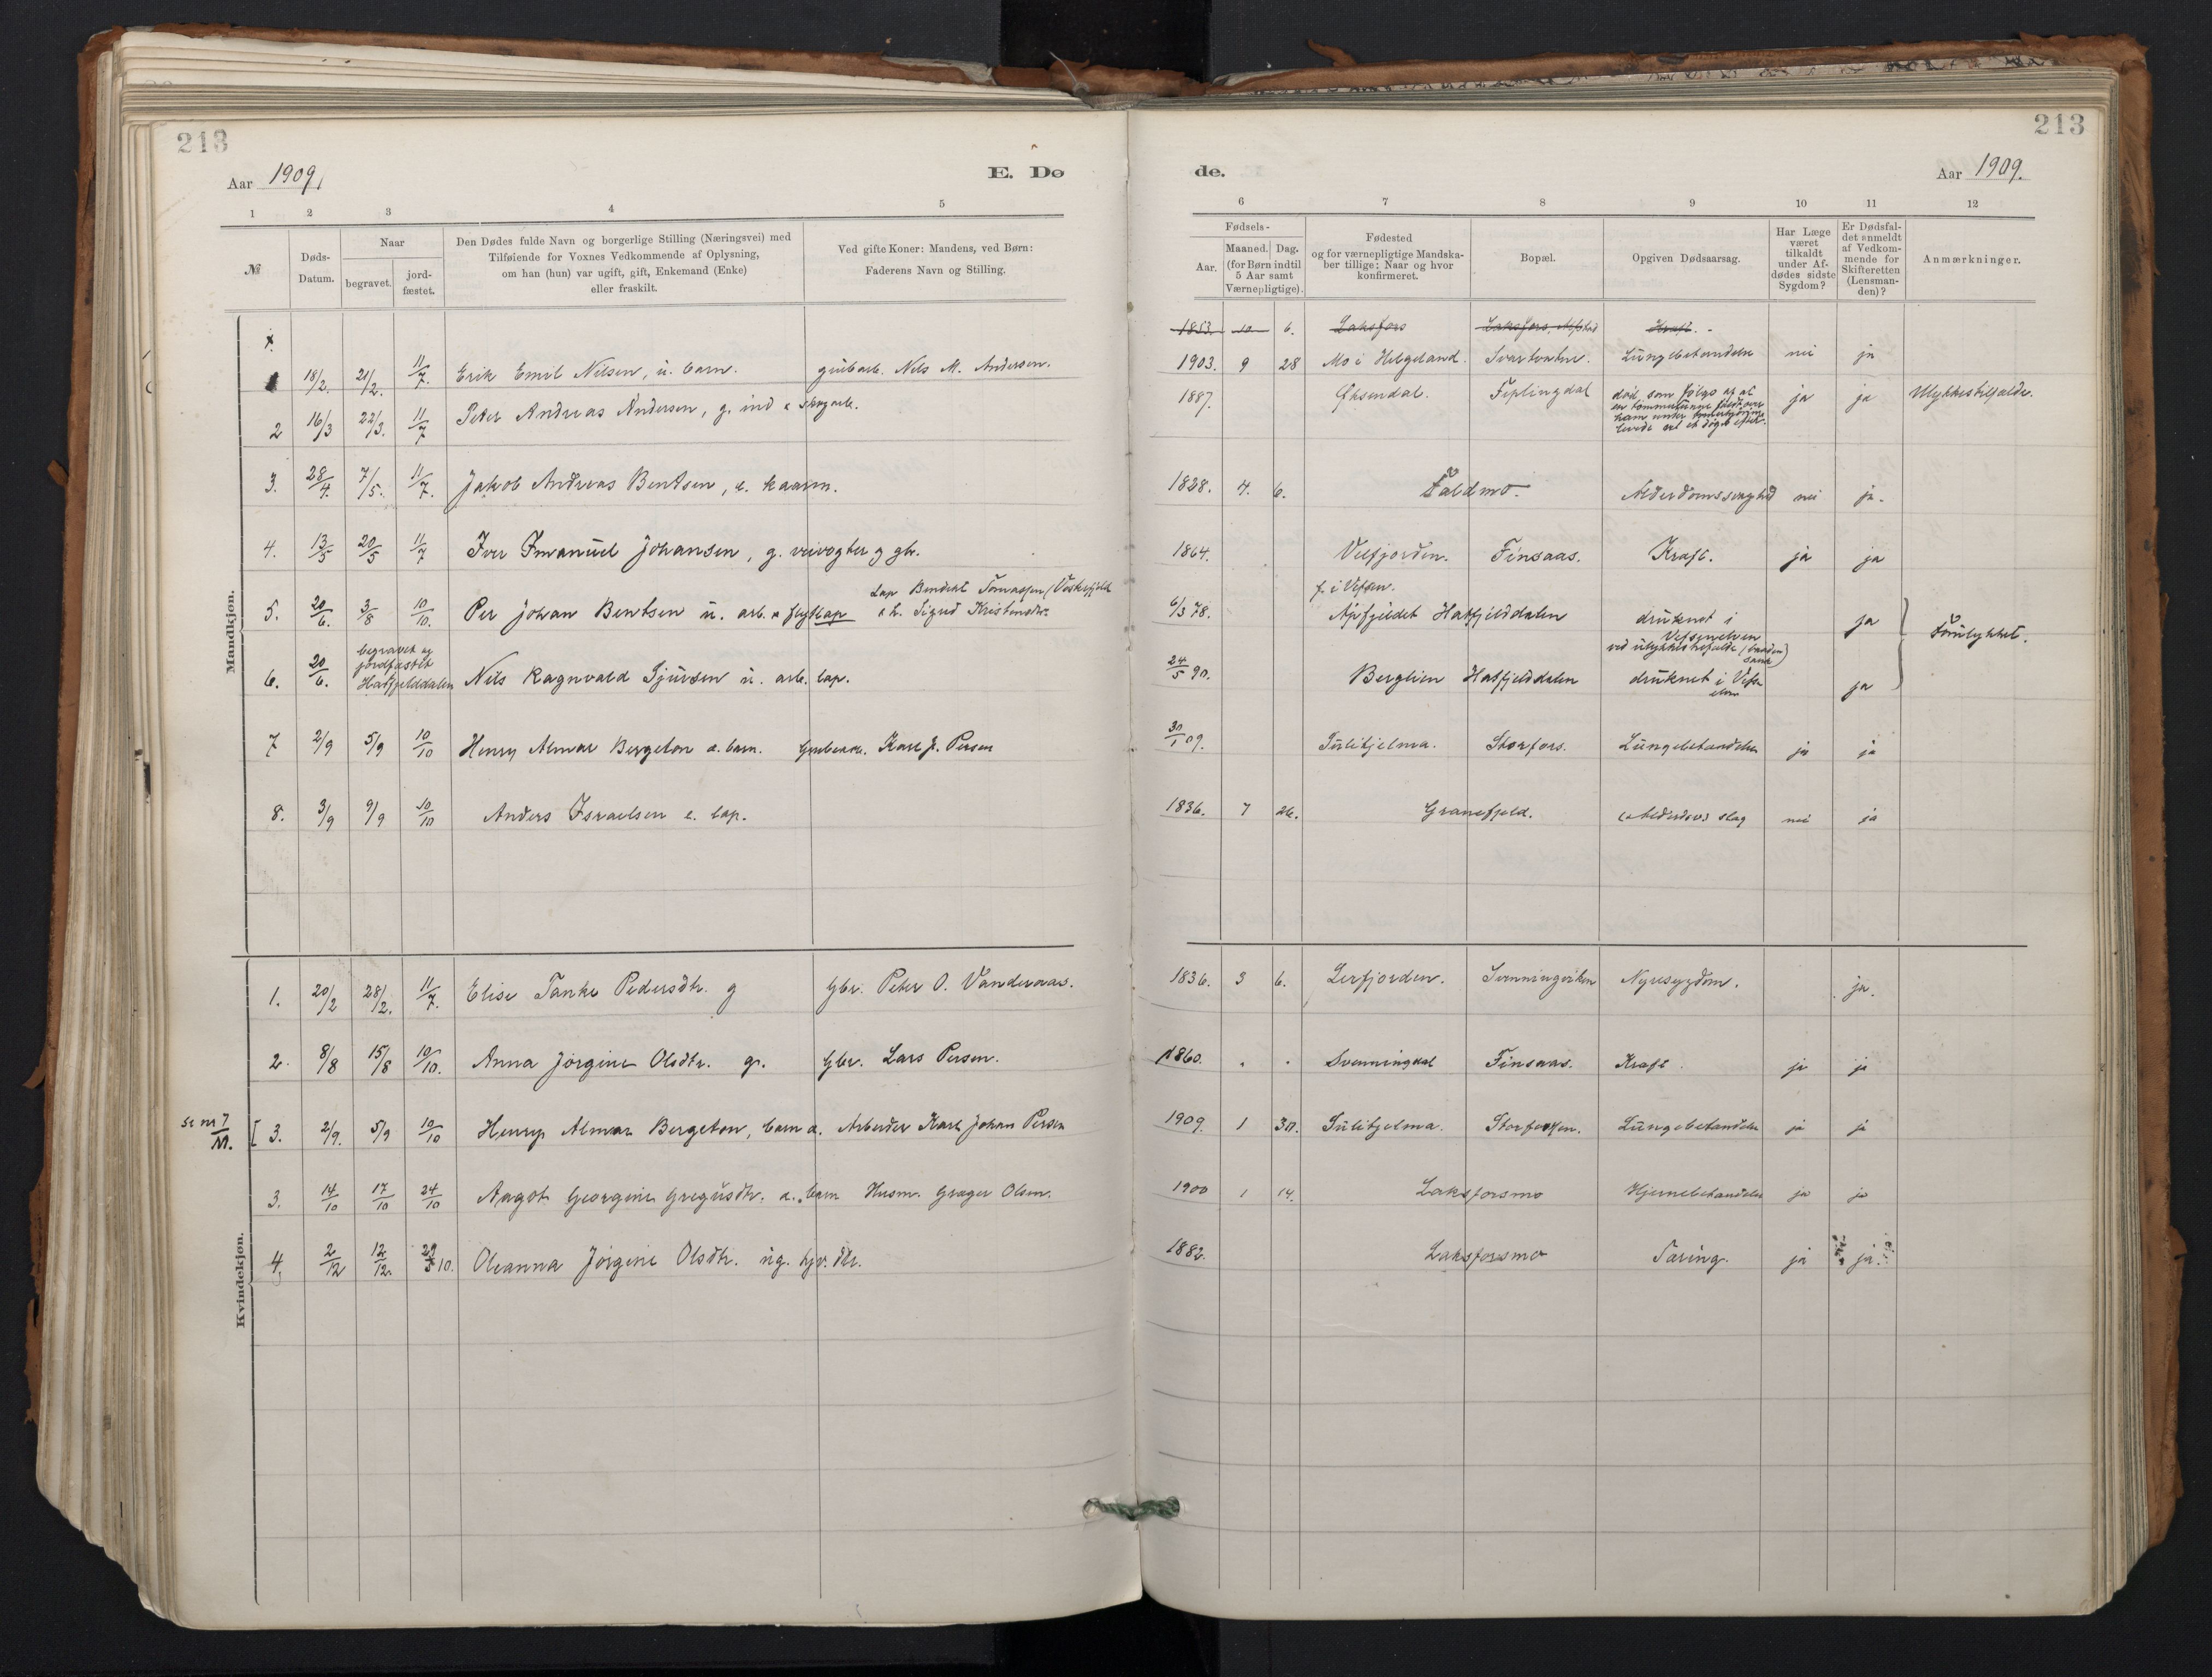 213
213
Aar 1909.
E. Dø
de.
Aar 1909.
1 2 3 4 5
6 7 8 9 10 11 12
№
Døds-
Datum.
Naar
begravet.
jord-
fæstet.
Den Dødes fulde Navn og borgerlige Stilling (Næringsvei) med
Tilføiende for Voxnes Vedkommende af Oplysning,
om han (hun) var ugift, gift, Enkemand (Enke)
eller fraskilt.
Ved gifte Koner: Mandens, ved Børn:
Faderens Navn og Stilling.
Fødsels-
Aar.
Maaned. Dag.
(for Børn indtil
5 Aar samt
Værnepligtige).
Fødested
og for værnepligtige Mandska-
ber tillige: Naar og hvor
konfirmeret.
Bopæl.
Opgiven Dødsaarsag.
Har Læge
været
tilkaldt
under Af-
dødes sidste
Sygdom?
Er Dødsfal-
det anmeldt
af Vedkom-
mende for
Skifteretten
(Lensman-
den)?
Anmærkninger.
Mandkjøn.
1853. 10 6. Laksfors Laksfors, Kraft.
18/2. 21/2. 11/7. Erik Emil Nilsen, u. barn. grubearb. Nels M. Andersen. 1903. 9 28 Mo i Helgeland. Svartvatne. Lungebetændelse nei ja
2 16/3 22/3. 11/7 Peder Andreas Andersen, g. ind & skogarb. 1887. Øksendal. Fiplingdal død som følge af at
en tømmerlunne faldt over
ham under
levede vel et døgn efter. ja ja Ulykkestilfælde.
3. 28/4. 7/5. 11/7. Jakob Andreas Bentsen, e. kaarm. 1828. 4. 6. Faldmo. Alderdomssvaghed nei ja.
4. 13/5 20/5 11/7 Iver Emanuel Johansen, g. veivogter og gbr. 1864. Velfjorden. Finsaas. Kræft. ja ja
5. 20/6. 3/8 10/10. Per Johan Bentsen u. arb. & flytlap Lap Bendikt Tomassen
& h. Sigrid Kristensdtr. 6/3 78. f. i Vefsen.
Hatfjelddalen druknet i
Vefsenelven
ved ulykkestilfælde ja
6. 20/6. begravet og
jordfæstet
Hatfjelddalen Nils Ragnvald Sjursen u. arb. lap. 24/5 90. Berglien Hatfjelddalen druknet i Vefs
elven ja Forulykket.
7 2/9 5/9 10/10 Henry Almar Bergeton æ. barn. Grubearb. Karl J. Persen 30/1 09. Sulitjelma. Storfors. Lungebetændelse ja ja
8. 3/9 9/9 10/10 Anders Israelsen e. lap. 1836. 7 26. Granefjeld. slag nei ja
Kvindekjøn.
1. 20/2 28/2. 11/7. Elise Tanke Pedersdtr. g Gbr. Peter O. Vanderaas. 1836. 3 6. Lerfjorden. Svenningviken Nyresygdom. ja.
2. 8/8 15/8 10/10. Anna Jørgine Olsdtr. g. Gbr. Lars Persen. 1860. Svenningdal Finsaas. Kræft. ja ja
se nr 7
M. [ 3. 2/9. 5/9 10/10 Henry Almar Bergeton, barn æ. Arbeider Karl Johan Persen 1909. 1 30. Sulitjelma. Storforsen. Lungebetændelse ja ja
3. 14/10 17/10 24/10 Aagot Georgine Gregusdtr. æ. barn Husm. Græger Olsen. 1900 1 14. Laksforsmo Hjernebetændelse ja ja
4. 2/12 12/12. 10. Oleanna Jørgine Olsdtr. ug. gbr. dtr. 1882. Laksforsmo Tæring. ja ja.